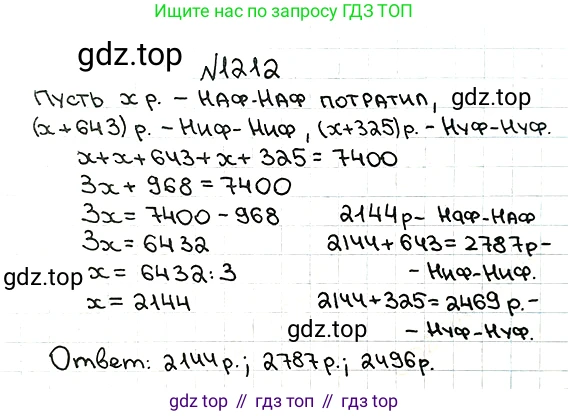 Ищите нас по запросу ГДЗ ТОП
gdz.top
№1212
Пусть х р. – НАФ-НАФ потратил, gdz.top
(х+643) р. – Ниф-Ниф, (х+325)р. – Нуф-Нуф.
х+х+643+х+325=7400
3х+968=7400
3х=7400-968 2144р– НаФ-НАФ
3х=6432 2144+643=2787р–
gdz.top х= 6432:3 – Ниф-Ниф.
х=2144 2144+325=2469 р.–
gdz.top – Нуф-Нуф.
Ответ: 2144р.; 2787р.; 2496р.
gdz.top // гдз топ // gdz.top // гдз топ